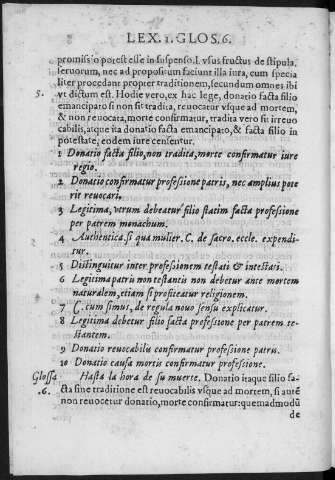 LEX. 1. GLOS. 6.
promissio potest esse in suspenso. l. vsus fructus de stipula.
seruorum, nec ad propositum faciunt illa iura, cum specia
liter procedant propter traditionem, secundum omnes ibi
5. vt dictum est. Hodie vero, ex hac lege, donatio facta filio
emancipato si non sit tradita, reuocatur vsque ad mortem,
& non reuocata, morte confirmatur, tradita vero sit irreuo
cabilis, atque ita donatio facta emancipato, & facta filio in
potestate, eodem iure censentur.
1 Donatio facta filio, non tradita, morte confirmatur iure
regio.
2 Donatio confirmatur professione patris, nec amplius pote
rit reuocari.
3 Legitima, vtrum debeatur filio statim facta professione
per patrem monachum.
4 Authentica. si qua mulier. C. de sacro. eccle. expendi-
tur.
5 Distinguitur inter professionem testati & intestati.
6 Legitima patris non testantis non debetur ante mortem
naturalem, etiam si profiteatur religionem.
7 C. cum simus, de regula nouo sensu explicatur.
8 Legitima debetur filio facta professione per patrem te-
stantem.
9 Donatio reuocabilis confirmatur professione patris.
10 Donatio causa mortis confirmatur professione.
Glossa Hasta la hora de su muerte. Donatio itaque filio fa-
.6. cta sine traditione est reuocabilis vsque ad mortem, si autē
non reuocetur donatio, morte confirmatur: quemadmodū
de